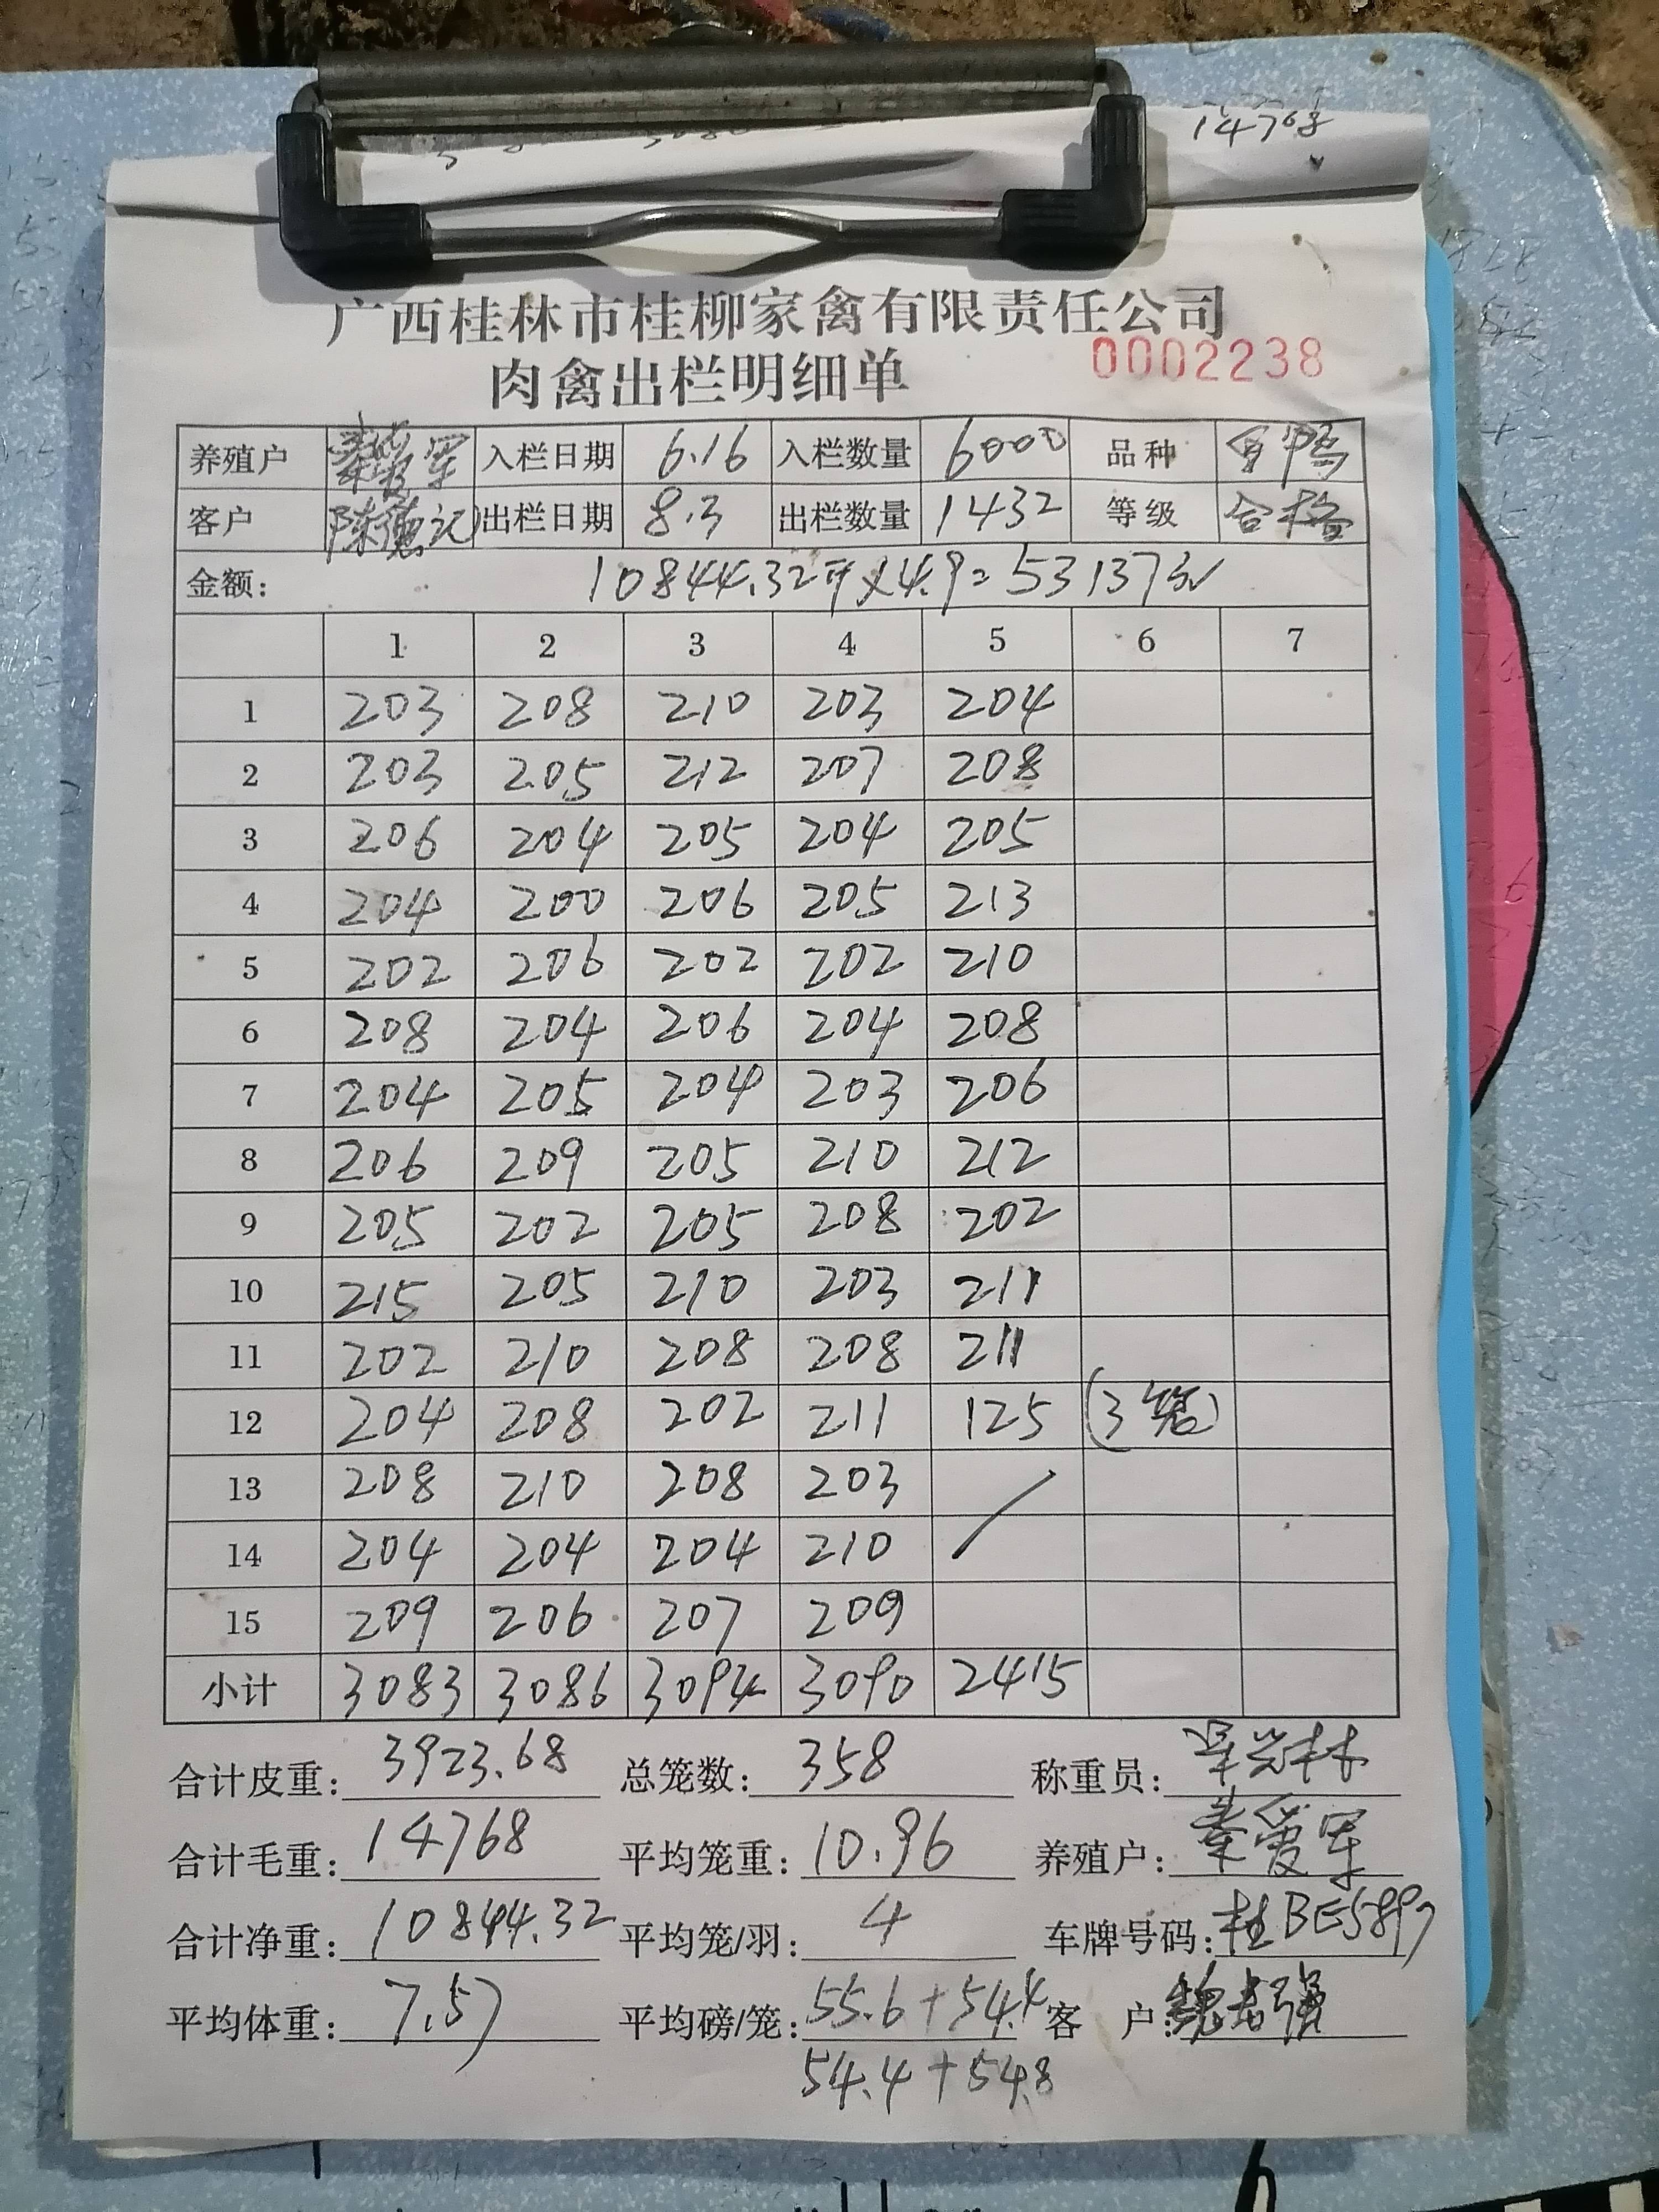 14768
广西桂林市桂柳家禽有限责任公司
肉禽出栏明细单 0002238
养殖户 秦爱军 入栏日期 6.16 入栏数量 6000 品种 白鸭
客户 陈德记 出栏日期 8.3 出栏数量 1432 等级 合格
金额: 10844.32斤×4.9=53137元
1 2 3 4 5 6 7
1 203 208 210 203 204
2 203 205 212 207 208
3 206 204 205 204 205
4 204 200 206 205 213
5 202 206 202 202 210
6 208 204 206 204 208
7 204 205 204 203 206
8 206 209 205 210 212
9 205 202 205 208 202
10 215 205 210 203 211
11 202 210 208 208 211
12 204 208 202 211 125 (3笼)
13 208 210 208 203
14 204 204 204 210
15 209 206 207 209
小计 3083 3086 3094 3090 2415
合计皮重: 3923.68 总笼数: 358 称重员:
合计毛重: 14768 平均笼重: 10.96 养殖户: 秦爱军
合计净重: 10844.32 平均笼/羽: 4 车牌号码: 桂BE5897
平均体重: 7.57 平均磅/笼: 55.6+54.4 客 户:
54.4+54.8